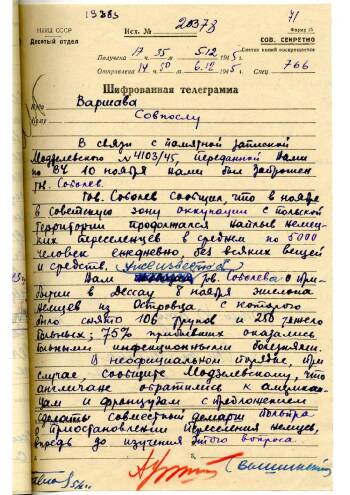 19383
71
НКИД СССР
Десятый отдел
Исх. № 20378
Форма 25
СОВ. СЕКРЕТНО
Снятие копий воспрещается
Получена 17 35 5.12 1945
Отправлена 14 50 6.12 1945 Спец 766
Шифрованная телеграмма
Куда Варшава
Кому Совпослу
В связи с памятной запиской
Модзелевского № 4103/45, переданной Нами
по ВЧ 10 ноября нами был запрошен
тов. Соболев.
Тов. Соболев сообщил, что в ноябре
в советскую зону оккупации с польской
территории продолжался наплыв немец-
ких переселенцев в среднем по 5000
человек ежедневно, без всяких вещей
и средств.
Нам известно тов. Соболева о при-
бытии в Дессау 8 ноября эшелона
немцев из Островца, с которого
было снято 106 трупов и 250 тяжело
больных; 75% прибывших оказались
больными инфекционными болезнями.
В неофициальном порядке, при
случае, сообщите Модзелевскому, что
англичане обратились к американ-
цам и французам с предложением
сделать совместный демарш
о приостановлении переселения немцев,
впредь до изучения этого вопроса.